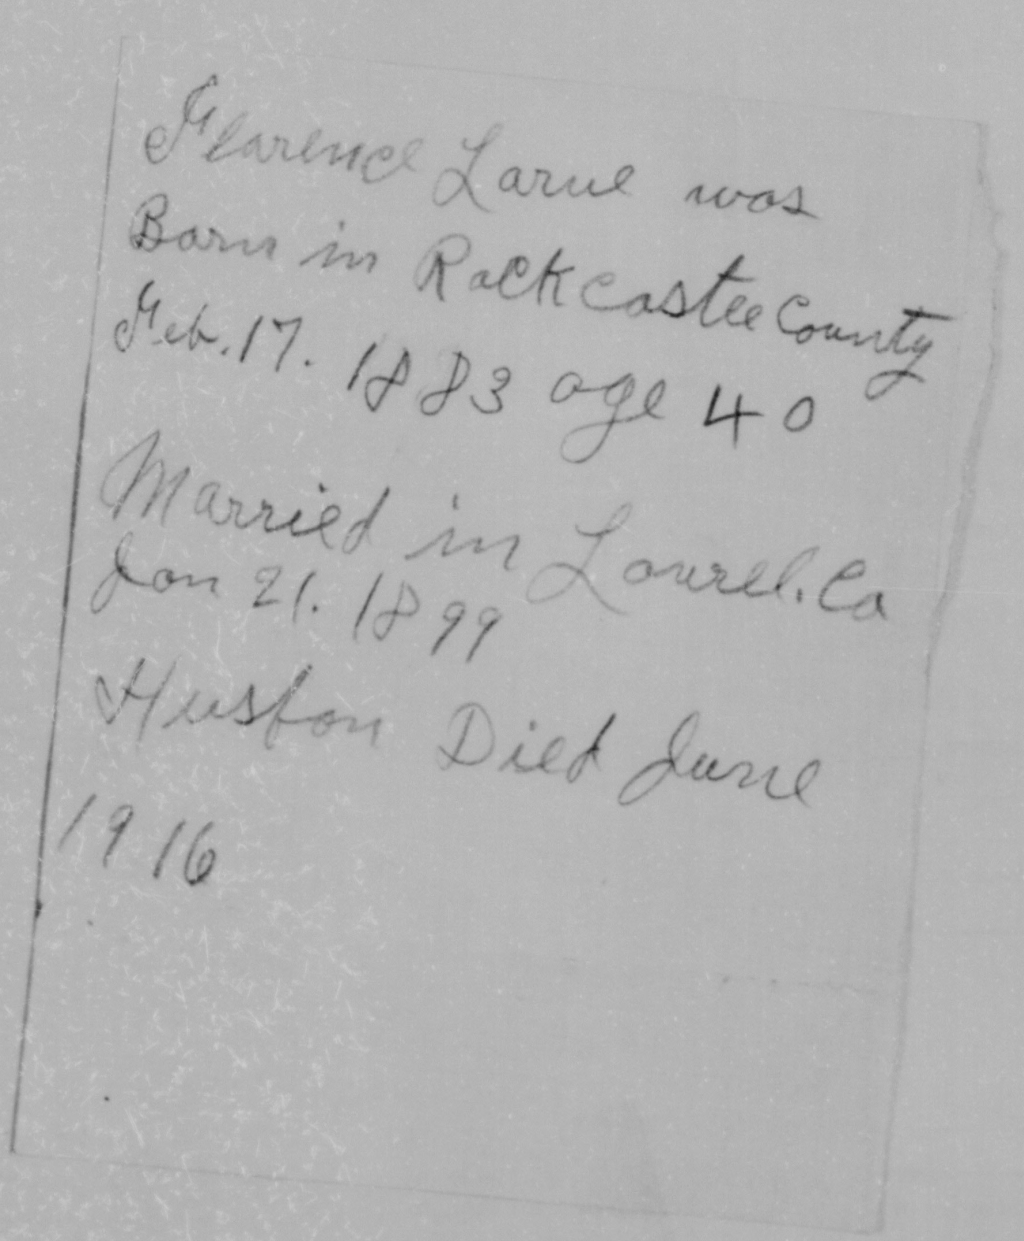 Florence Larue was
Born in Rockcastle County
Feb. 17. 1883 age 40
Married in Laurel. Co
Jan 21. 1899
Huston Died June
1916